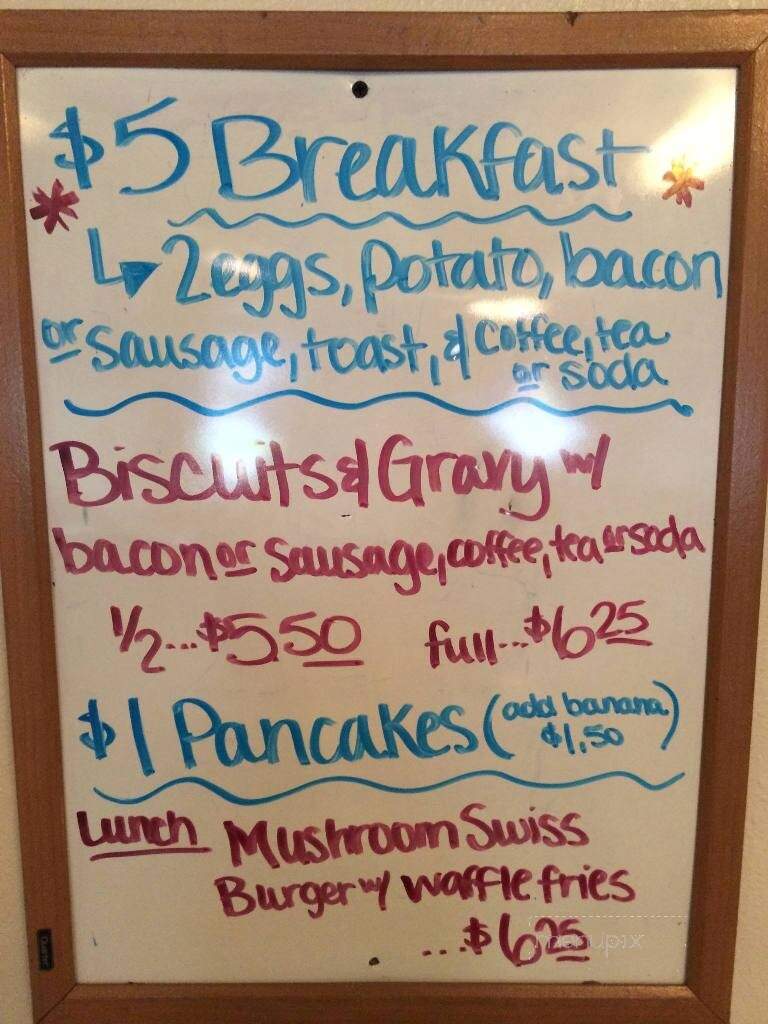 $5 Breakfast
2 eggs, potato, bacon
or sausage, toast, & coffee, tea
or soda
Biscuits & Gravy w/
bacon or sausage, coffee, tea or soda
1/2...$5.50 full...$6.25
$1 Pancakes (add banana
$1.50)
Lunch Mushroom Swiss
Burger w/ waffle fries
...$6.25
menupix
Quartet